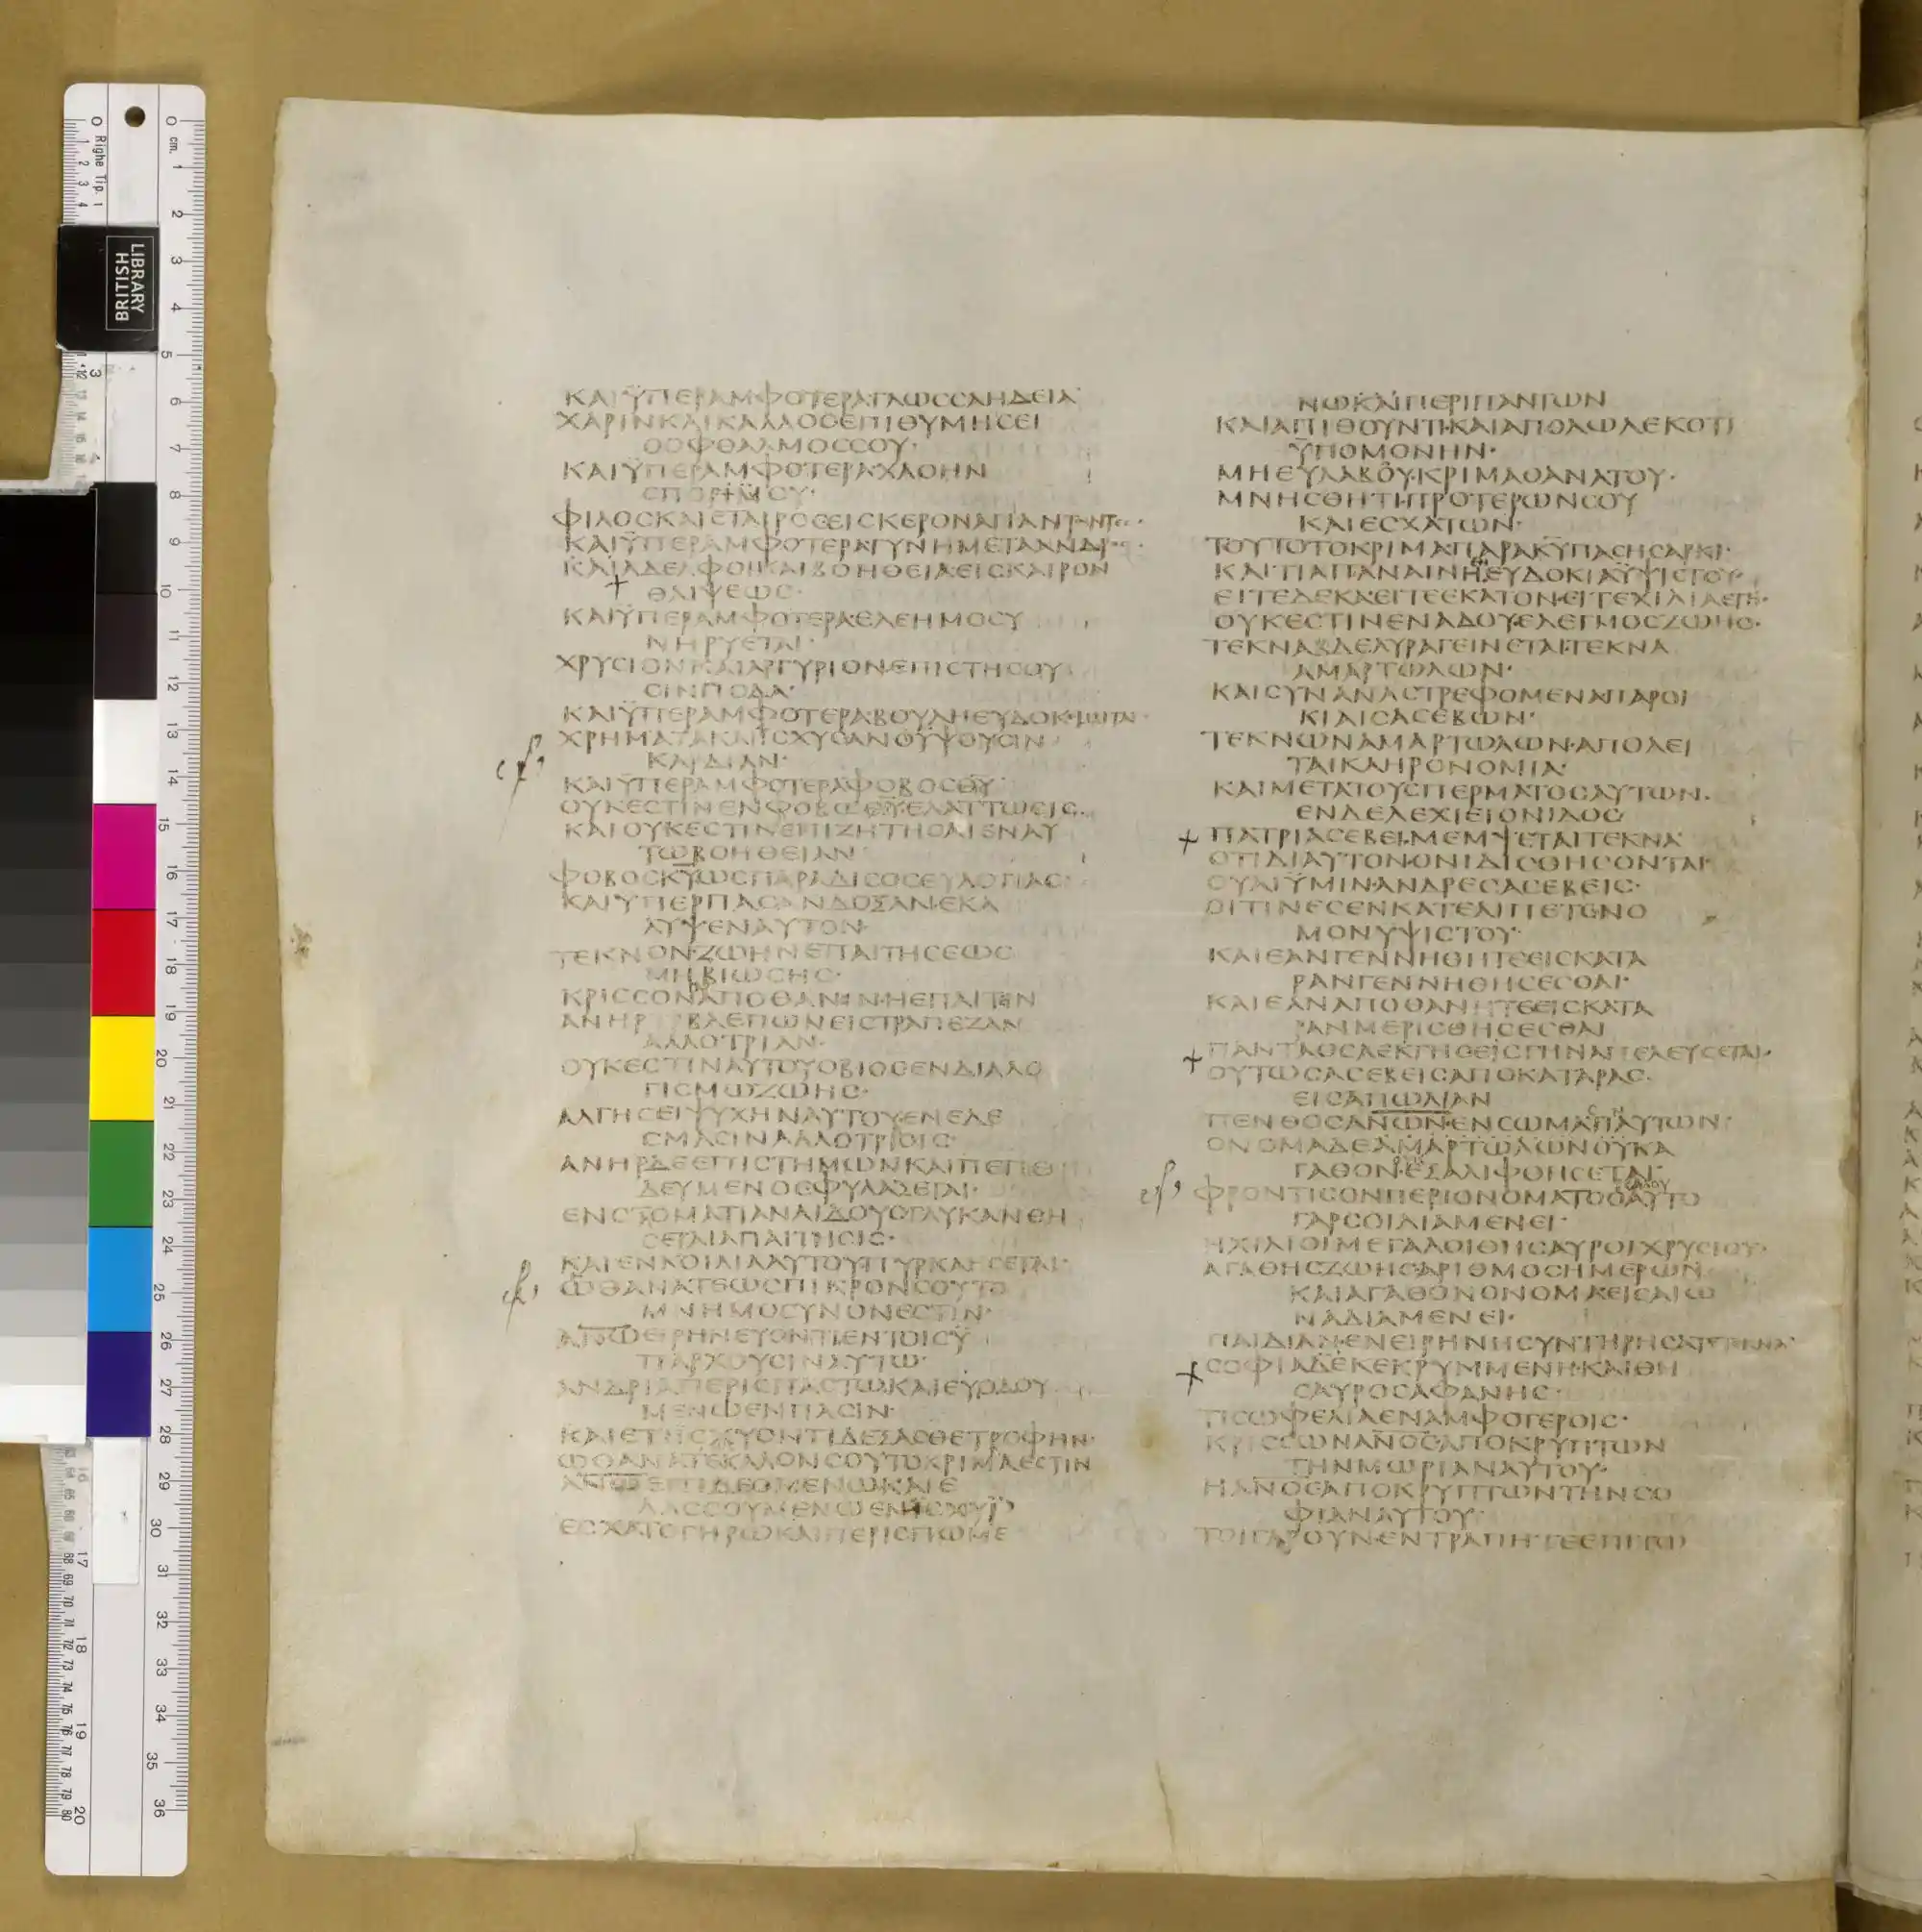 ΚΑΙΫΠΕΡΑΜΦΟΤΕΡΑΓΛΩΣΣΑΗΔΕΙΑ
ΧΑΡΙΝΚΑΙΚΑΛΛΟΣΕΠΙΘΥΜΗΣΕΙ
ΟΟΦΘΑΛΜΟΣΣΟΥ·
ΚΑΙΫΠΕΡΑΜΦΟΤΕΡΑΧΛΟΗΝ
ΣΠΟΡΙΜΟΥ·
ΦΙΛΟΣΚΑΙΕΤΑΙΡΟΣΕΙΣΚΕΡΟΝΑΠΑΝΤΩΝΤΕΣ·
ΚΑΙΫΠΕΡΑΜΦΟΤΕΡΑΓΥΝΗΜΕΤΑΑΝΔΡΟΣ·
ΚΑΙΑΔΕΛΦΟΙΚΑΙΒΟΗΘΕΙΑΕΙΣΚΑΙΡΟΝ
ΘΛΙΨΕΩΣ·
ΚΑΙΫΠΕΡΑΜΦΟΤΕΡΑΕΛΕΗΜΟΣΥ
ΝΗΡΥΕΤΑΙ·
ΧΡΥΣΙΟΝΚΑΙΑΡΓΥΡΙΟΝΕΠΙΣΤΗΣΟΥ
ΣΙΝΠΟΔΑ·
ΚΑΙΫΠΕΡΑΜΦΟΤΕΡΑΒΟΥΛΗΕΥΔΟΚΙΜΙΤΑΙ·
ΧΡΗΜΑΤΑΚΑΙΙΣΧΥΣΑΝΟΥΨΟΥΣΙΝ
ΚΑΡΔΙΑΝ·
ΚΑΙΫΠΕΡΑΜΦΟΤΕΡΑΦΟΒΟΣΘΥ
ΟΥΚΕΣΤΙΝΕΝΦΟΒΩΘΥΕΛΑΤΤΩΣΙΣ·
ΚΑΙΟΥΚΕΣΤΙΝΕΠΙΖΗΤΗΣΑΙΕΝΑΥ
ΤΩΒΟΗΘΕΙΑΝ
ΦΟΒΟΣΚΥΩΣΠΑΡΑΔΙΣΟΣΕΥΛΟΓΙΑΣ·
ΚΑΙΥΠΕΡΠΑΣΑΝΔΟΞΑΝΕΚΑ
ΛΥΨΕΝΑΥΤΟΝ·
ΤΕΚΝΟΝΖΩΗΝΕΠΑΙΤΗΣΕΩΣ
ΜΗΒΙΩΣΗΣ·
ΚΡΙΣΣΟΝΑΠΟΘΑΝΙΝΗΕΠΑΙΤΙΝ
ΑΝΗΡ ΒΛΕΠΩΝΕΙΣΤΡΑΠΕΖΑΝ
ΑΛΛΟΤΡΙΑΝ·
ΟΥΚΕΣΤΙΝΑΥΤΟΥΟΒΙΟΣΕΝΔΙΑΛΟ
ΓΙΣΜΩΖΩΗΣ·
ΑΛΓΗΣΕΙΨΥΧΗΝΑΥΤΟΥΕΝΕΔΕ
ΣΜΑΣΙΝΑΛΛΟΤΡΙΟΙΣ·
ΑΝΗΡΔΕΕΠΙΣΤΗΜΩΝΚΑΙΠΕΠΕ
ΔΕΥΜΕΝΟΣΦΥΛΑΞΕΤΑΙ·
ΕΝΣΤΟΜΑΤΙΑΝΑΙΔΟΥΣΓΛΥΚΑΝΘΗ
ΣΕΤΑΙΑΠΑΙΤΗΣΙΣ·
ΚΑΙΕΝΚΟΙΛΙΑΑΥΤΟΥΠΥΡΚΑΗΣΕΤΑΙ·
ΩΘΑΝΑΤΕΩΣΠΙΚΡΟΝΣΟΥΤΟ
ΜΝΗΜΟΣΥΝΟΝΕΣΤΙΝ·
ΑΝΩΕΙΡΗΝΕΥΟΝΤΙΕΝΤΟΙΣΫ
ΠΑΡΧΟΥΣΙΝΑΥΤΩ·
ΑΝΔΡΙΑΠΕΡΙΣΠΑΣΤΩΚΑΙΕΥΟΔΟΥ
ΜΕΝΩΕΝΠΑΣΙΝ·
ΚΑΙΕΤΙΙΣΧΥΟΝΤΙΔΕΞΑΣΘΕΤΡΟΦΗΝ·
ΩΘΑΝΑΤΕΚΑΛΟΝΣΟΥΤΟΚΡΙΜΑΕΣΤΙΝ
ΑΝΩΕΠΙΔΕΟΜΕΝΩΚΑΙΕ
ΛΑΣΣΟΥΜΕΝΩΕΝΙΣΧΥΪ
ΕΣΧΑΤΟΓΗΡΩΚΑΙΠΕΡΙΣΠΩΜΕ
ΝΩΚΑΙΠΕΡΙΠΑΝΤΩΝ
ΚΑΙΑΠΙΘΟΥΝΤΙΚΑΙΑΠΟΛΩΛΕΚΟΤΙ
ΫΠΟΜΟΝΗΝ·
ΜΗΕΥΛΑΒΟΥΚΡΙΜΑΘΑΝΑΤΟΥ·
ΜΝΗΣΘΗΤΙΠΡΟΤΕΡΩΝΣΟΥ
ΚΑΙΕΣΧΑΤΩΝ·
ΤΟΥΤΟΤΟΚΡΙΜΑΠΑΡΑΚΥΠΑΣΗΣΑΡΚΙ·
ΚΑΙΤΙΑΠΑΝΑΙΝΗΕΥΔΟΚΙΑΫΨΙΣΤΟΥ·
ΕΙΤΕΔΕΚΑΕΙΤΕΕΚΑΤΟΝΕΙΤΕΧΙΛΙΑΕΤΗ·
ΟΥΚΕΣΤΙΝΕΝΑΔΟΥΕΛΕΓΜΟΣΖΩΗΣ·
ΤΕΚΝΑΒΔΕΛΥΡΑΓΕΙΝΕΤΑΙΤΕΚΝΑ
ΑΜΑΡΤΩΛΩΝ·
ΚΑΙΣΥΝΑΝΑΣΤΡΕΦΟΜΕΝΑΠΑΡΟΙ
ΚΙΑΙΣΑΣΕΒΩΝ·
ΤΕΚΝΩΝΑΜΑΡΤΩΛΩΝΑΠΟΛΕΙ
ΤΑΙΚΛΗΡΟΝΟΜΙΑ·
ΚΑΙΜΕΤΑΤΟΥΣΠΕΡΜΑΤΟΣΑΥΤΩΝ·
ΕΝΔΕΛΕΧΙΕΙΟΝΙΔΟΣ
ΠΑΤΡΙΑΣΕΒΕΙΜΕΜΨΕΤΑΙΤΕΚΝΑ
ΟΤΙΔΙΑΥΤΟΝΟΝΙΔΙΣΘΗΣΟΝΤΑΙ·
ΟΥΑΙΫΜΙΝΑΝΔΡΕΣΑΣΕΒΕΙΣ·
ΟΙΤΙΝΕΣΕΝΚΑΤΕΛΙΠΕΤΕΝΟ
ΜΟΝΥΨΙΣΤΟΥ·
ΚΑΙΕΑΝΓΕΝΝΗΘΗΤΕΕΙΣΚΑΤΑ
ΡΑΝΓΕΝΝΗΘΗΣΕΣΘΑΙ·
ΚΑΙΕΑΝΑΠΟΘΑΝΗΤΕΕΙΣΚΑΤΑ
ΡΑΝΜΕΡΙΣΘΗΣΕΣΘΑΙ
ΠΑΝΤΑΟΣΑΕΚΓΗΣΕΙΣΓΗΝΑΠΕΛΕΥΣΕΤΑΙ·
ΟΥΤΩΣΑΣΕΒΕΙΣΑΠΟΚΑΤΑΡΑΣ·
ΕΙΣΑΠΩΛΙΑΝ
ΠΕΝΘΟΣΑΝΩΝΕΝΣΩΜΑΣΙΝΑΥΤΩΝ·
ΟΝΟΜΑΔΕΑΜΑΡΤΩΛΩΝΟΥΚΑ
ΓΑΘΟΝΕΞΑΛΙΦΘΗΣΕΤΑΙ·
ΦΡΟΝΤΙΣΟΝΠΕΡΙΟΝΟΜΑΤΟΣΑΥΤΟ
ΓΑΡΣΟΙΔΙΑΜΕΝΕΙ·
ΗΧΙΛΙΟΙΜΕΓΑΛΟΙΘΗΣΑΥΡΟΙΧΡΥΣΙΟΥ·
ΑΓΑΘΗΣΖΩΗΣΑΡΙΘΜΟΣΗΜΕΡΩΝ
ΚΑΙΑΓΑΘΟΝΟΝΟΜΑΕΙΣΑΙΩ
ΝΑΔΙΑΜΕΝΕΙ·
ΠΑΙΔΙΑΝΕΝΕΙΡΗΝΗΣΥΝΤΗΡΗΣΑΤΕΤΕΚΝΑ·
ΣΟΦΙΑΔΕΚΕΚΡΥΜΜΕΝΗΚΑΙΘΗ
ΣΑΥΡΟΣΑΦΑΝΗΣ·
ΤΙΣΩΦΕΛΙΑΕΝΑΜΦΟΤΕΡΟΙΣ·
ΚΡΙΣΣΩΝΑΝΟΣΑΠΟΚΡΥΠΤΩΝ
ΤΗΝΜΩΡΙΑΝΑΥΤΟΥ·
ΗΑΝΟΣΑΠΟΚΡΥΠΤΩΝΤΗΝΣΟ
ΦΙΑΝΑΥΤΟΥ·
ΤΟΙΓΑΡΟΥΝΕΝΤΡΑΠΗΤΕΕΠΙΤΩ
LIBRARY
BRITISH